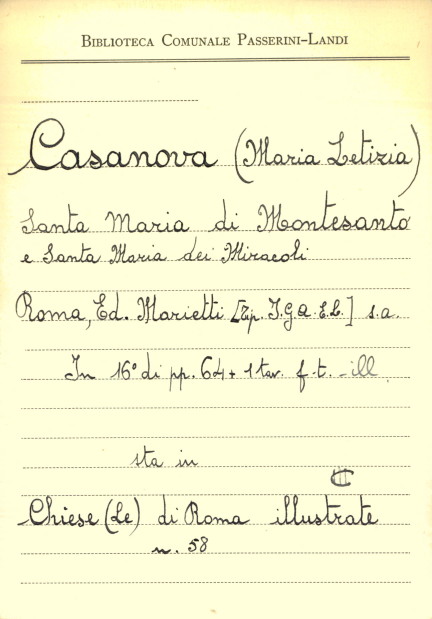 BIBLIOTECA COMUNALE PASSERINI-LANDI
Casanova (Maria Letizia)
Santa Maria di Montesanto
e Santa Maria dei Miracoli
Roma, Ed. Marietti [Tip. I.G.a.E.L.] s.a.
In 16° di pp. 64 + 1 tav. f.t. - ill
sta in
Chiese (Le) di Roma illustrate
n. 58